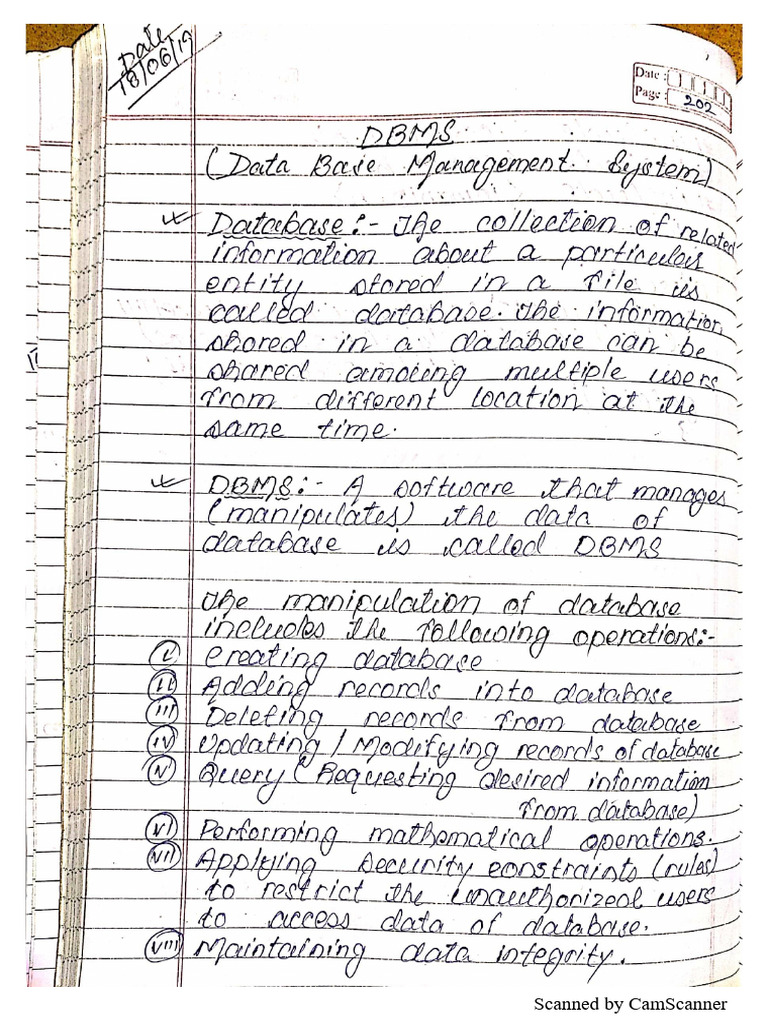 Date
18/06/19
Date :
Page : 202
DBMS
(Data Base Management System)
Database:- The collection of related
information about a particular
entity stored in a file is
called database. The information
shored in a database can be
shared amoing multiple users
from different location at the
same time.
DBMS:- A software that manages
(manipulates) the data of
database is called DBMS
The manipulation of database
includes the following operations:-
i Creating database
ii Adding records into database
iii Deleting records from database
iv Updating / Modifying records of database
v Query (Requesting desired information
from database)
vi Performing mathematical operations.
vii Applying security constraints (rules)
to restrict the unauthorized users
to access data of database.
viii Maintaining data integrity.
Scanned by CamScanner